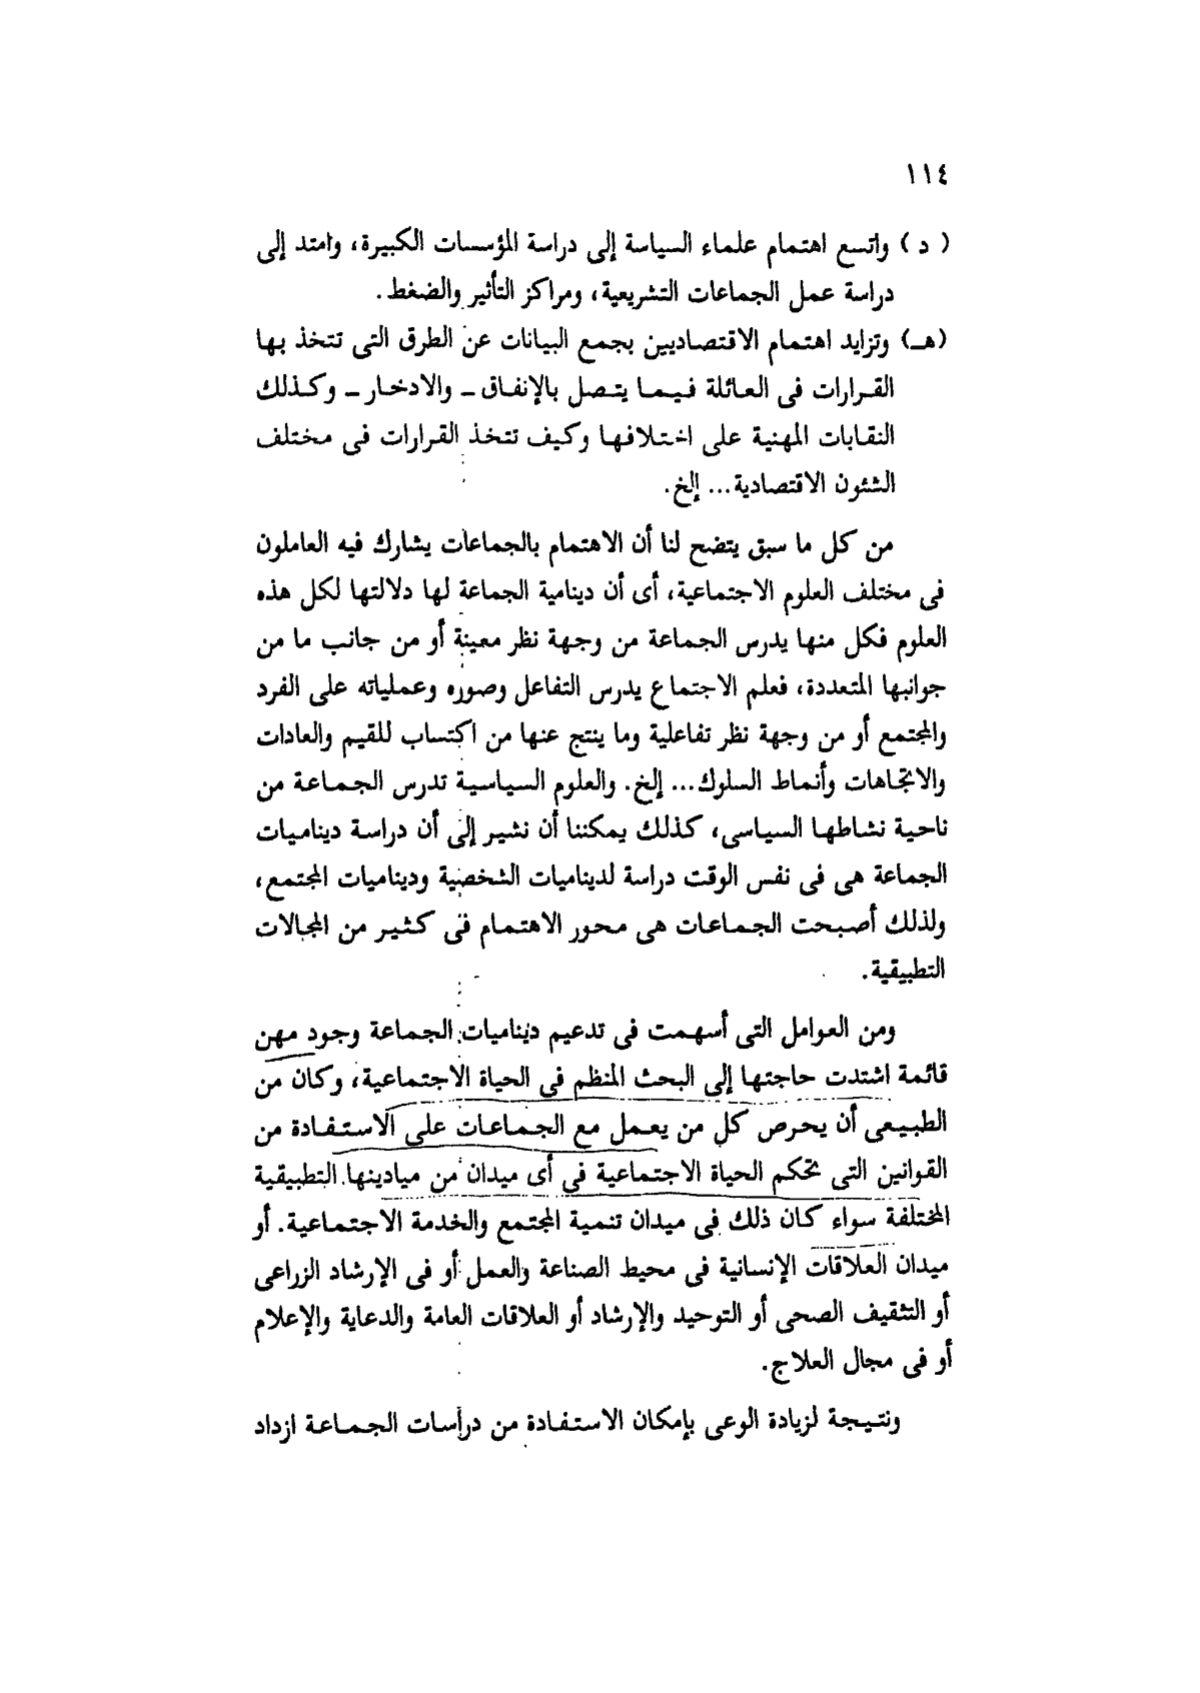 ١١٤
( د ) واتسع اهتمام علماء السياسة إلى دراسة المؤسسات الكبيرة، وامتد إلى
دراسة عمل الجماعات التشريعية، ومراكز التأثير والضغط.
(هـ) وتزايد اهتمام الاقتصاديين بجمع البيانات عن الطرق التى تتخذ بها
القرارات فى العائلة فيما يتصل بالإنفاق ـ والادخار ـ وكذلك
النقابات المهنية على اختلافها وكيف تتخذ القرارات فى مختلف
الشئون الاقتصادية... إلخ.
من كل ما سبق يتضح لنا أن الاهتمام بالجماعات يشارك فيه العاملون
فى مختلف العلوم الاجتماعية، أى أن دينامية الجماعة لها دلالتها لكل هذه
العلوم فكل منها يدرس الجماعة من وجهة نظر معينة أو من جانب ما من
جوانبها المتعددة، فعلم الاجتماع يدرس التفاعل وصوره وعملياته على الفرد
والمجتمع أو من وجهة نظر تفاعلية وما ينتج عنها من اكتساب للقيم والعادات
والاتجاهات وأنماط السلوك... إلخ. والعلوم السياسية تدرس الجماعة من
ناحية نشاطها السياسى، كذلك يمكننا أن نشير إلى أن دراسة ديناميات
الجماعة هى فى نفس الوقت دراسة لديناميات الشخصية وديناميات المجتمع،
ولذلك أصبحت الجماعات هى محور الاهتمام فى كثير من المجالات
التطبيقية.
ومن العوامل التى أسهمت فى تدعيم ديناميات الجماعة وجود مهن
قائمة اشتدت حاجتها إلى البحث المنظم فى الحياة الاجتماعية، وكان من
الطبيعى أن يحرص كل من يعمل مع الجماعات على الاستفادة من
القوانين التى تحكم الحياة الاجتماعية فى أى ميدان من ميادينها التطبيقية
المختلفة سواء كان ذلك فى ميدان تنمية المجتمع والخدمة الاجتماعية. أو
ميدان العلاقات الإنسانية فى محيط الصناعة والعمل أو فى الإرشاد الزراعى
أو التثقيف الصحى أو التوحيد والإرشاد أو العلاقات العامة والدعاية والإعلام
أو فى مجال العلاج.
ونتيجة لزيادة الوعى بإمكان الاستفادة من دراسات الجماعة ازداد